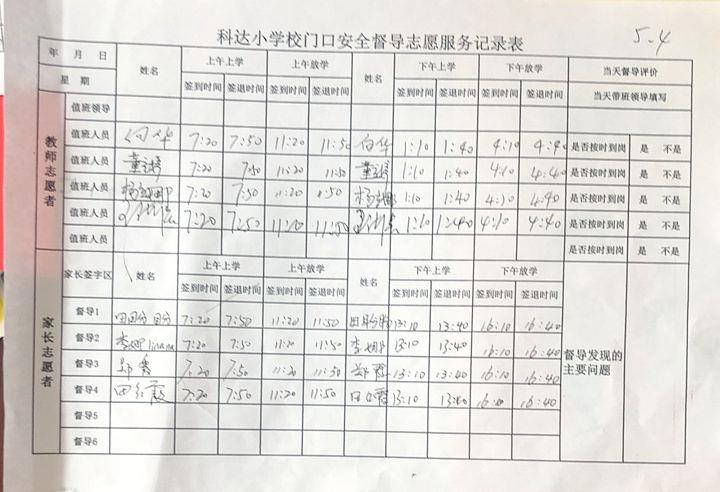 科达小学校门口安全督导志愿服务记录表
5-4
年 月 日 姓名 上午上学 上午放学 姓名 下午上学 下午放学 当天督导评价
星 期 签到时间 签退时间 签到时间 签退时间 签到时间 签退时间 签到时间 签退时间 当天带班领导填写
教师志愿者
值班领导
值班人员 7:20 7:50 11:20 11:50 1:10 1:40 4:10 4:40 是否按时到岗 是 不是
值班人员 7:20 7:50 11:20 11:50 1:10 1:40 4:10 4:40 是否按时到岗 是 不是
值班人员 7:20 7:50 11:20 11:50 1:10 1:40 4:10 4:40 是否按时到岗 是 不是
值班人员 7:20 7:50 11:20 11:50 1:10 1:40 4:10 4:40 是否按时到岗 是 不是
值班人员 是否按时到岗 是 不是
家长签字区 姓名 上午上学 上午放学 姓名 下午上学 下午放学
签到时间 签退时间 签到时间 签退时间 签到时间 签退时间 签到时间 签退时间
家长志愿者
督导1 7:20 7:50 11:20 11:50 13:10 13:40 16:10 16:40
督导2 李娜 7:20 7:50 11:20 11:50 李娜 13:10 13:40 16:10 16:40
督导3 郑霞 7:20 7:50 11:20 11:50 郑霞 13:10 13:40 16:10 16:40
督导4 田红霞 7:20 7:50 11:20 11:50 13:10 13:40 16:10 16:40
督导5
督导6
督导发现的
主要问题